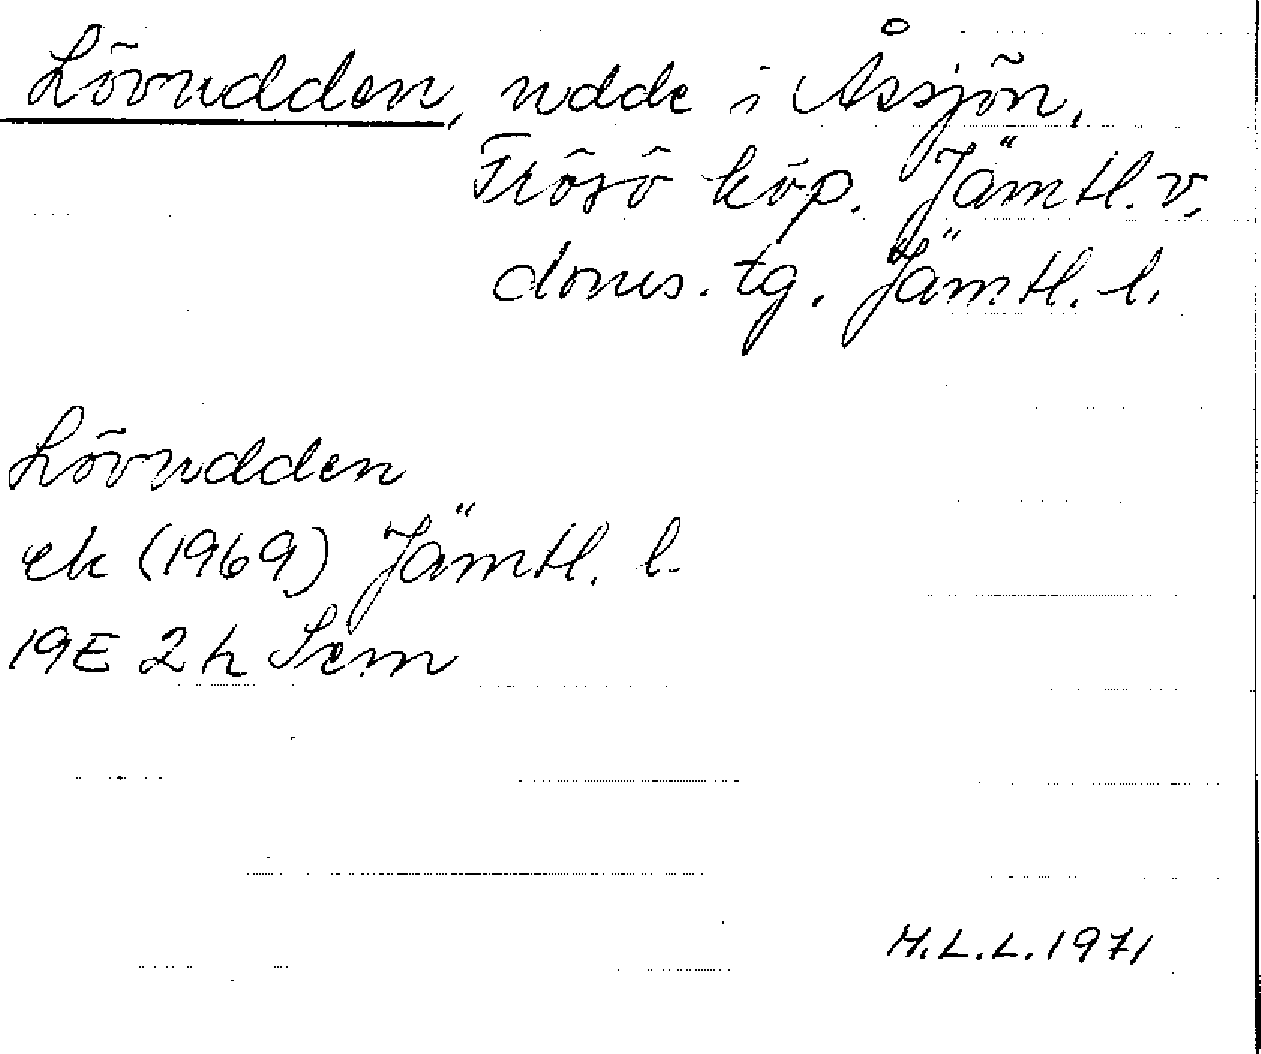 Lövudden, udde i Åssjön,
Frösö köp. Jämtl. v.
doms. tg. Jämtl. l.
Lövudden
ek (1969) Jämtl. l.
19E 2h Sem
H.L.L. 1971